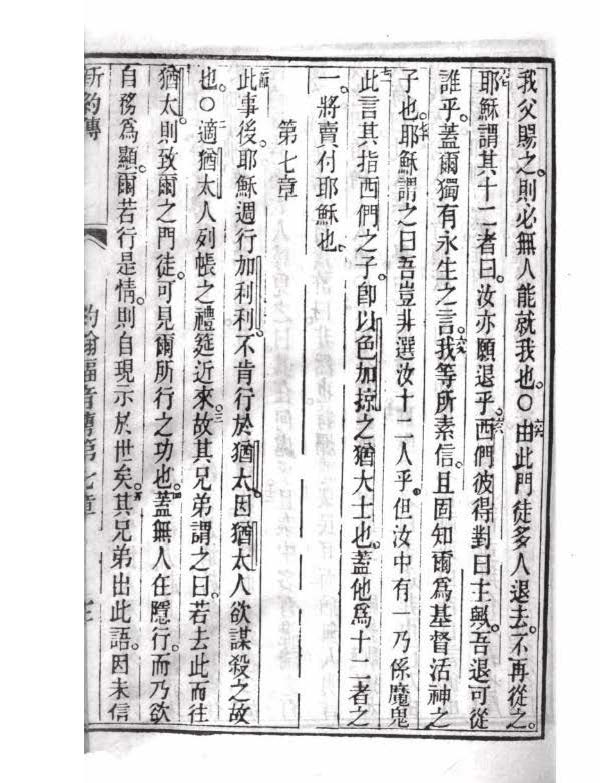 我父賜之。則必無人能就我也。○六六由此門徒多人退去。不再從之。
六七耶穌謂其十二者曰。汝亦願退乎。六八西們彼得對曰主歟。吾退可從
誰乎。蓋爾獨有永生之言。六九我等所素信。且固知爾為基督活神之
子也。七十耶穌謂之曰吾豈非選汝十二人乎。但汝中有一乃係魔鬼
七一此言其指西們之子。卽以色加掠之猶大士也。蓋他為十二者之
一。將賣付耶穌也。
第七章
一此事後。耶穌週行加利利。不肯行於猶太。因猶太人欲謀殺之故
也。○二適猶太人列帳之禮筵近來。三故其兄弟謂之曰。若去此而往
猶太。則致爾之門徒。可見爾所行之功也。四蓋無人在隱行。而乃欲
自務為顯。爾若行是情。則自現示於世矣。五其兄弟出此語。因未信
新約傳 約翰福音傳第七章